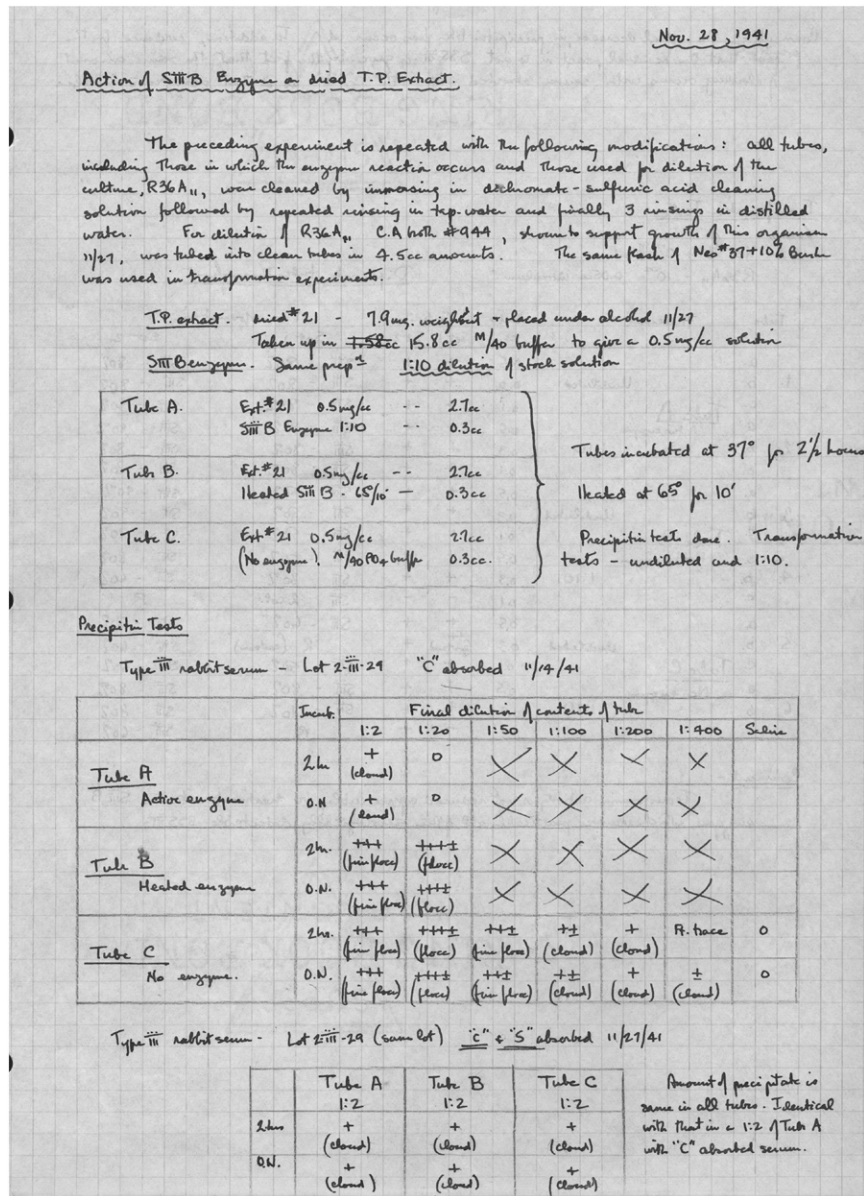 Nov. 28, 1941
Action of SIII B Enzyme on dried T.P. Extract.
The preceding experiment is repeated with the following modifications: all tubes,
including those in which the enzyme reaction occurs and those used for dilution of the
culture, R36A11, were cleaned by immersing in dichromate-sulfuric acid cleaning
solution followed by repeated rinsing in tap-water and finally 3 rinsings in distilled
water. For dilution of R36A11 C.A broth #944, shown to support growth of this organism
11/27, was tubed into clean tubes in 4.5cc amounts. The same flask of Neo #37+10%
was used in transformation experiments.
T.P. extract. dried #21 - 7.9mg. weighed out + placed under alcohol 11/27
Taken up in 1.58cc 15.8cc M/40 buffer to give a 0.5mg/cc solution
SIII B enzyme. Same prepn 1:10 dilution of stock solution
Tube A. Ext. #21 0.5mg/cc -- 2.7cc
SIII B Enzyme 1:10 -- 0.3cc
Tube B. Ext. #21 0.5mg/cc -- 2.7cc
Heated SIII B - 65°/10' - 0.3cc
Tube C. Ext #21 0.5mg/cc 2.7cc
(No enzyme). M/40 PO4 buffer 0.3cc.
Tubes incubated at 37° for 2 1/2 hours
Heated at 65° for 10'
Precipitin tests done. Transformation
tests - undiluted and 1:10.
Precipitin Tests
Type III rabbit serum - Lot 2-III-29 "C" absorbed 11/14/41
Incub. Final dilution of contents of tube
1:2 1:20 1:50 1:100 1:200 1:400 Saline
Tube A 2hr + 0 X X X X
(cloud)
Active enzyme O.N + 0 X X X X
(cloud)
Tube B 2hr. +++ +++± X X X X
(fine flocc) (flocc)
Heated enzyme O.N. +++ +++± X X X X
(fine flocc) (flocc)
Tube C 2hr. +++ +++± ++± +± + Ft. trace 0
(fine flocc) (flocc) (fine flocc) (cloud) (cloud)
No enzyme. O.N. +++ +++± ++± +± + ± 0
(fine flocc) (flocc) (fine flocc) (cloud) (cloud) (cloud)
Type III rabbit serum - Lot 2-III-29 (same lot) "C" & "S" absorbed 11/27/41
Tube A Tube B Tube C
1:2 1:2 1:2
2 hrs + + +
(cloud) (cloud) (cloud)
O.N. + + +
(cloud) (cloud) (cloud)
Amount of precipitate is
same in all tubes. Identical
with that in a 1:2 of Tube A
with "C" absorbed serum.